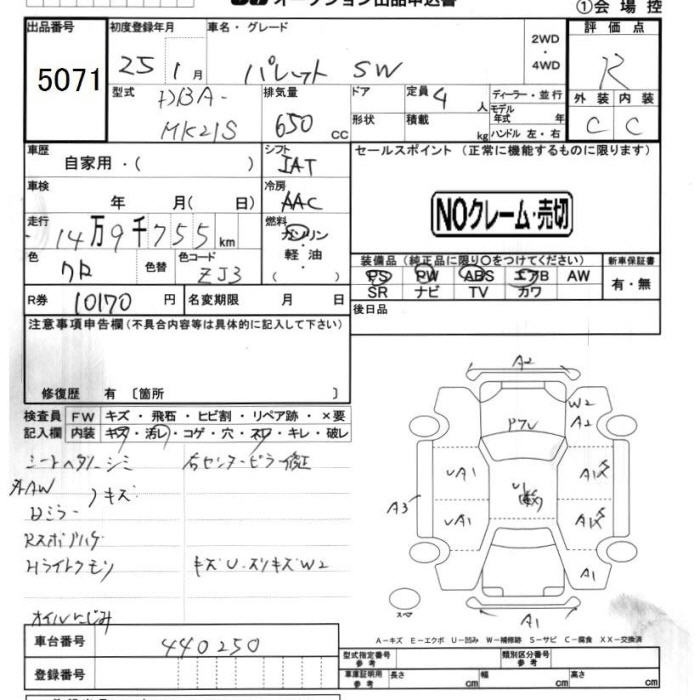 オークション出品申込書 ①会場控
出品番号 初度登録年月 車名・グレード 2WD・4WD 評価点
5071 25 1月 パレット SW R
型式 DBA-MK21S 排気量 650cc ドア 形状 定員 4人 積載 kg ディーラー・並行 モデル年式 年 ハンドル 左・右 外装 C 内装 C
車歴 自家用・( ) シフト IAT セールスポイント(正常に機能するものに限ります)
車検 年 月( 日) 冷房 AAC
NOクレーム・売切
走行 14万9千755km 燃料 ガソリン・軽油・( )
色 クロ 色替 色コード ZJ3
装備品(純正品に限り○をつけてください) 新車保証書
PS PW ABS エアB AW 有・無
SR ナビ TV カワ
R券 10170円 名変期限 月 日 後日品
注意事項申告欄(不具合内容等は具体的に記入して下さい)
修復歴 有〔箇所 〕
検査員 FW キズ・飛石・ヒビ割・リペア跡・×要
記入欄 内装 キズ・汚レ・コゲ・穴・スレ・キレ・破レ
シートヘタリ シミ 右センターピラー修正
AAW
Dミラー 〉キズ
Rスポイラ ハゲ
Hライトクモリ キズU スリキズW2
オイルにじみ
A2
W2
A2
PアU
UA1 A1
U
A3
UA1 A1
A1
スペア
A1
A-キズ E-エクボ U-凹み W-補修跡 S-サビ C-腐食 XX-交換済
車台番号 440250
登録番号
型式指定番号 参考 類別区分番号 参考
車庫証明用 参考 長さ cm 幅 cm 高さ cm